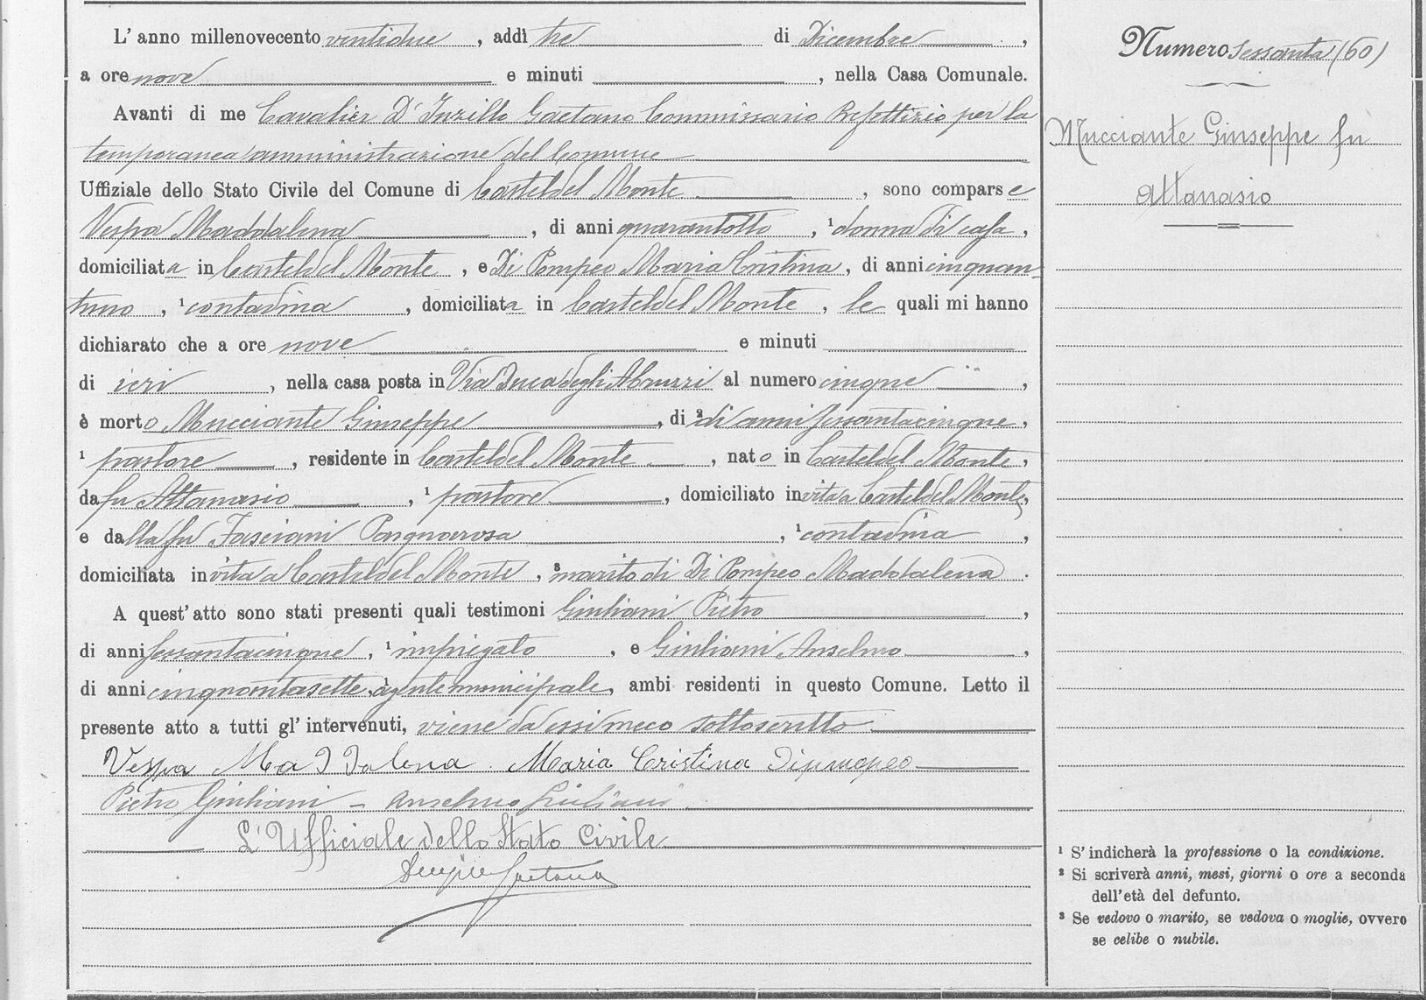 L'anno millenovecento ventidue, addì tre di Dicembre,
a ore nove e minuti , nella Casa Comunale.
Avanti di me Cavalier D' Gaetano Commissario Prefettizio per la
temporanea amministrazione del Comune
Uffiziale dello Stato Civile del Comune di Casteldel Monte , sono comparse
Vespa Maddalena , di anni quarantotto , ¹ donna di casa ,
domiciliata in Casteldel Monte , e Di Pompeo Maria Cristina, di anni cinquan-
tuno , ¹ contadina , domiciliata in Casteldel Monte , le quali mi hanno
dichiarato che a ore nove e minuti
di ieri , nella casa posta in Via Duca degli Abruzzi al numero cinque ,
è morto Mucciante Giuseppe , di ² di anni sessantacinque ,
¹ pastore , residente in Casteldel Monte , nato in Casteldel Monte ,
da fu Attanasio , ¹ pastore , domiciliato in vita a Casteldel Monte,
e dalla fu Fasciani , ¹ contadina ,
domiciliata in vita a Casteldel Monte , ³ marito di Di Pompeo Maddalena .
A quest'atto sono stati presenti quali testimoni Giuliani Pietro ,
di anni sessantacinque , ¹ impiegato , e Giuliani Anselmo ,
di anni cinquantasette, agente municipale, ambi residenti in questo Comune. Letto il
presente atto a tutti gl'intervenuti, viene da essi meco sottoscritto
Vespa Maddalena . Maria Cristina
Pietro Giuliani – Anselmo Giuliani
L'Ufficiale dello Stato Civile
Gaetano
Numero sessanta (60)
Mucciante Giuseppe fu
Attanasio
¹ S'indicherà la professione o la condizione.
² Si scriverà anni, mesi, giorni o ore a seconda
dell'età del defunto.
³ Se vedovo o marito, se vedova o moglie, ovvero
se celibe o nubile.